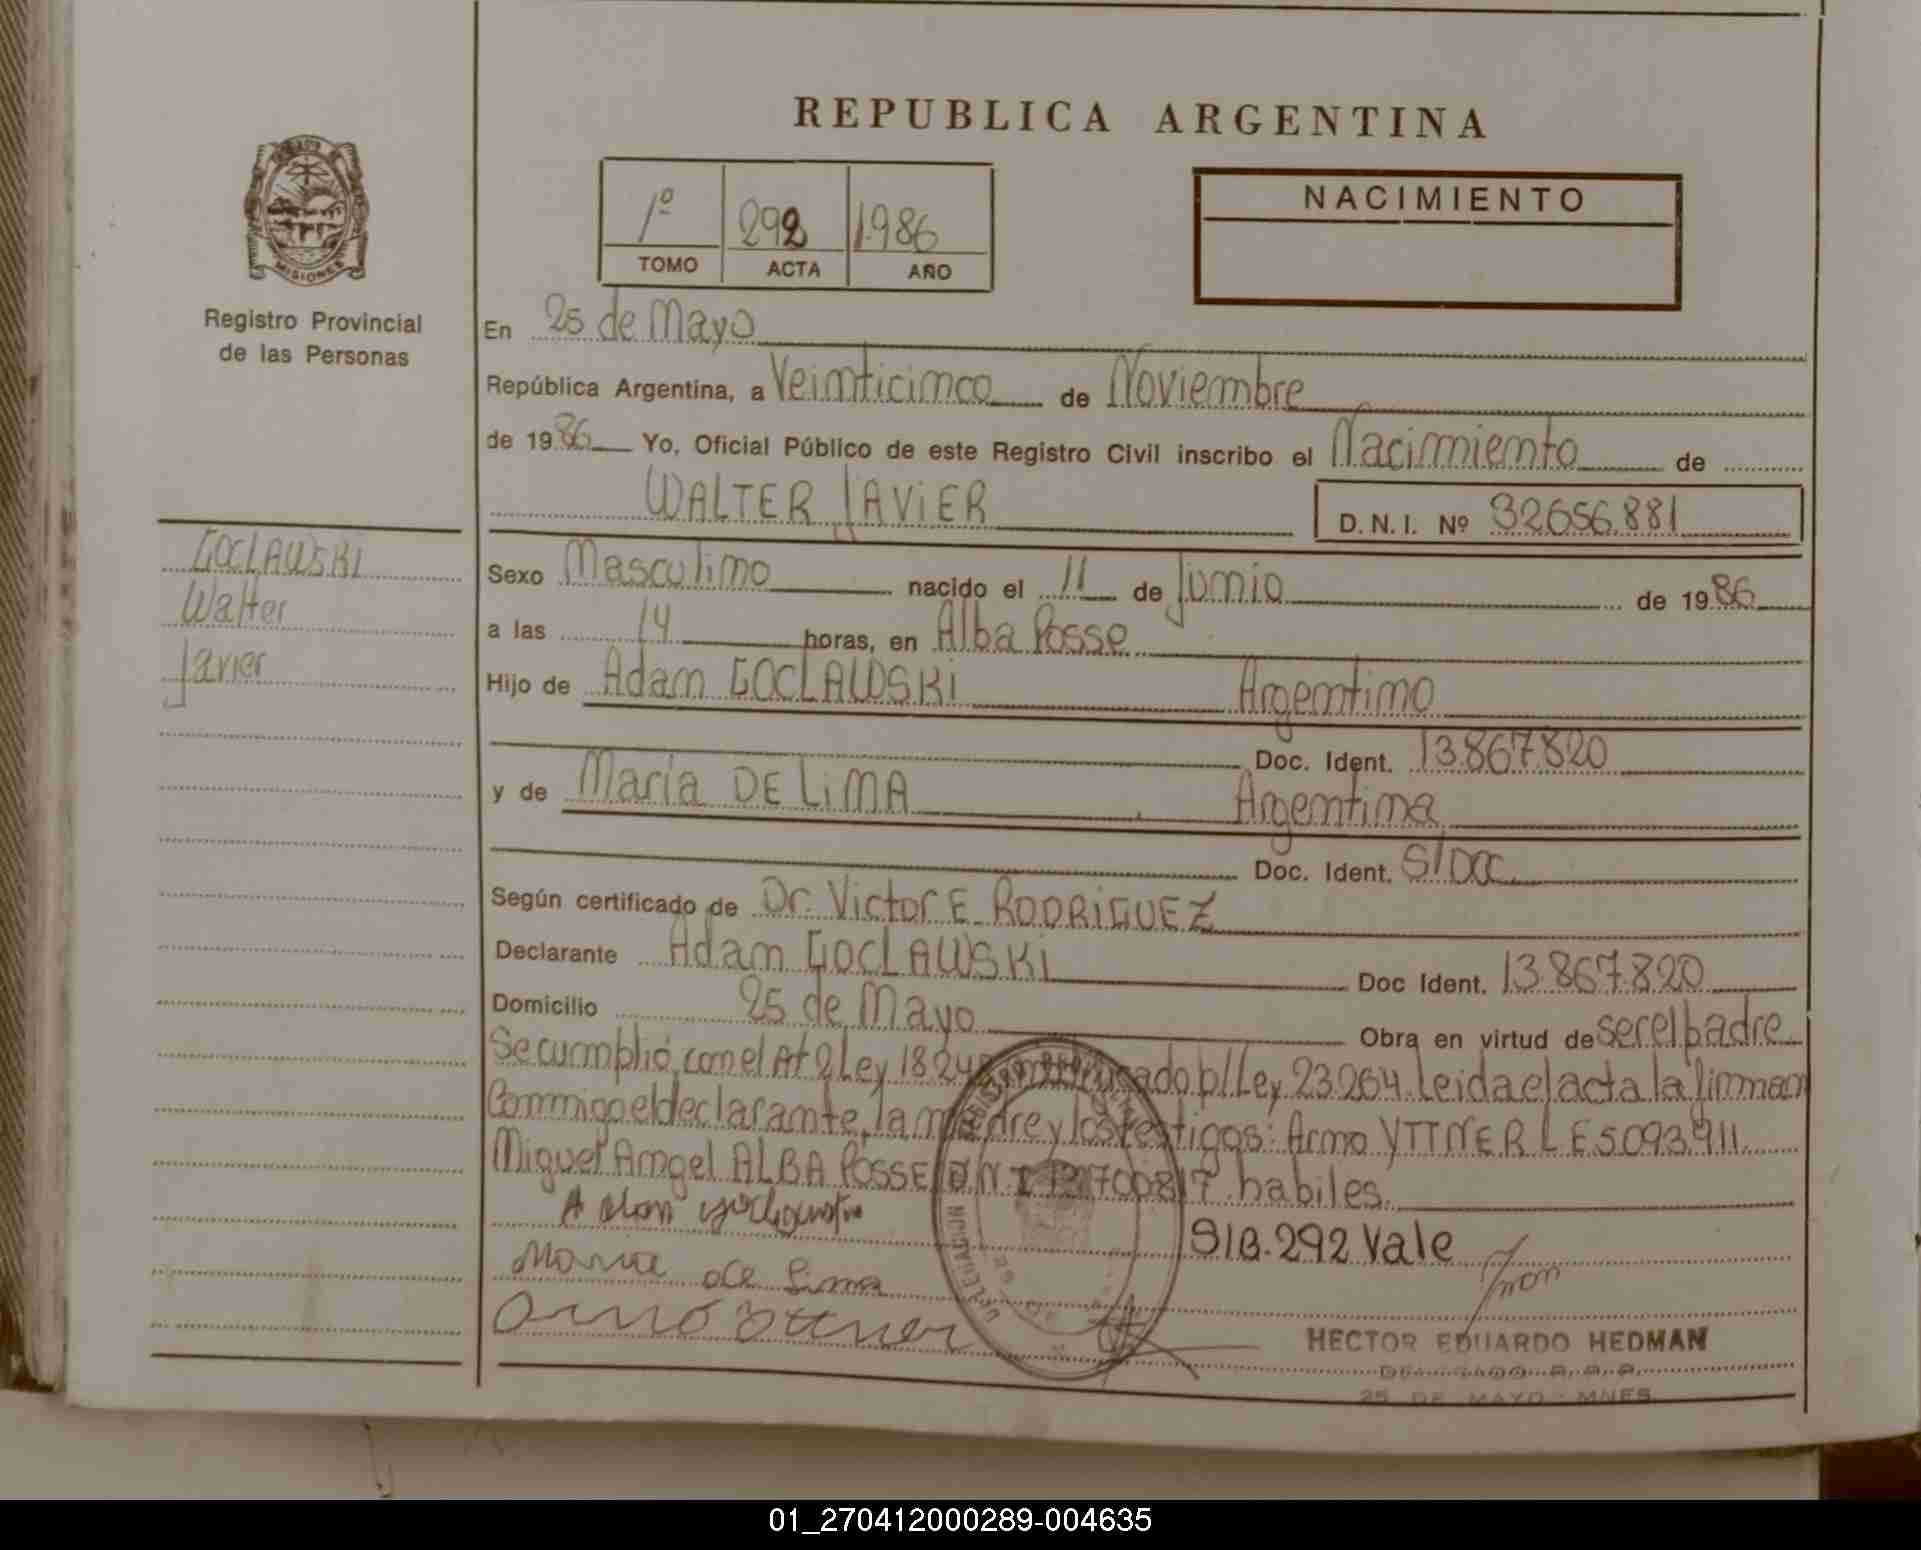 REPUBLICA ARGENTINA
1º 292 1986
TOMO ACTA AÑO
NACIMIENTO
MISIONES
Registro Provincial
de las Personas
GOCLAWSKI
Walter
Javier
En 25 de Mayo
República Argentina, a Veinticinco de Noviembre
de 1986 Yo, Oficial Público de este Registro Civil inscribo el Nacimiento de
WALTER JAVIER D.N.I. Nº 32656.881
Sexo Masculino nacido el 11 de Junio de 1986
a las 14 horas, en Alba Posse
Hijo de Adam GOCLAWSKI Argentino
Doc. Ident. 13.867.820
y de María DE LiMA Argentina
Doc. Ident. S/Doc.
Según certificado de Dr. Victor E. RODRiGUEZ
Declarante Adam GOCLAWSKi Doc Ident. 13.867.820
Domicilio 25 de Mayo Obra en virtud de ser el padre
Se cumplió con el At 2 Ley 18.248 modificado p/ Ley 23.264. Leida el acta la firman
Conmigo el declarante, la madre y los testigos: Arno YTTNER L E 5093.911.
Miguel Angel ALBA POSSE D N I 13700817 habiles.
S/B. 292 Vale
Maria de Lima
HECTOR EDUARDO HEDMAN
DELEGADO R. P. P.
25 DE MAYO - MNES.
01_270412000289-004635